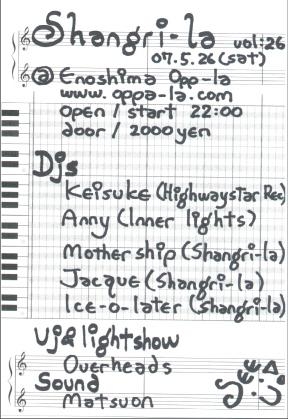 Shangri-la vol:26
07.5.26(sat)
@ Enoshima Opp-la
www.oppa-la.com
open / start 22:00
door / 2000yen
Djs
Keisuke (Highwaystar Rec)
Anny (Inner lights)
Mother ship (Shangri-la)
Jacque (Shangri-la)
Ice-o-later (Shangri-la)
Vj & lightshow
Overheads
Sound
Matsuon